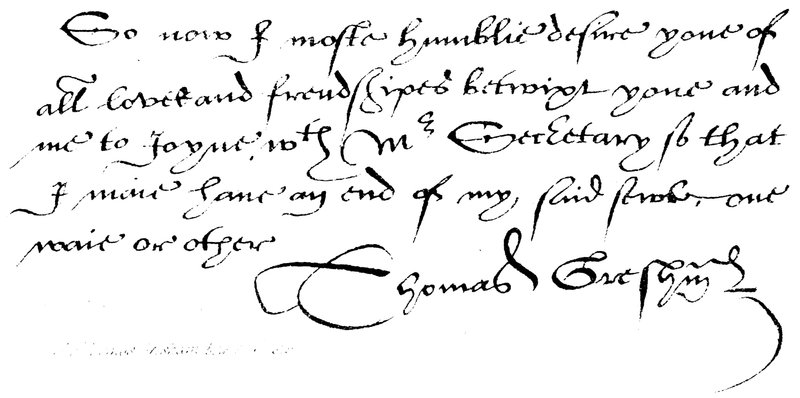 So now I moste humblie desire youe of
all loves and frendshipes betwixt youe and
me to Joyne wth Mr Secretary so that
I maie have an end of my said sewte one
waie or other
Thomas Gresham